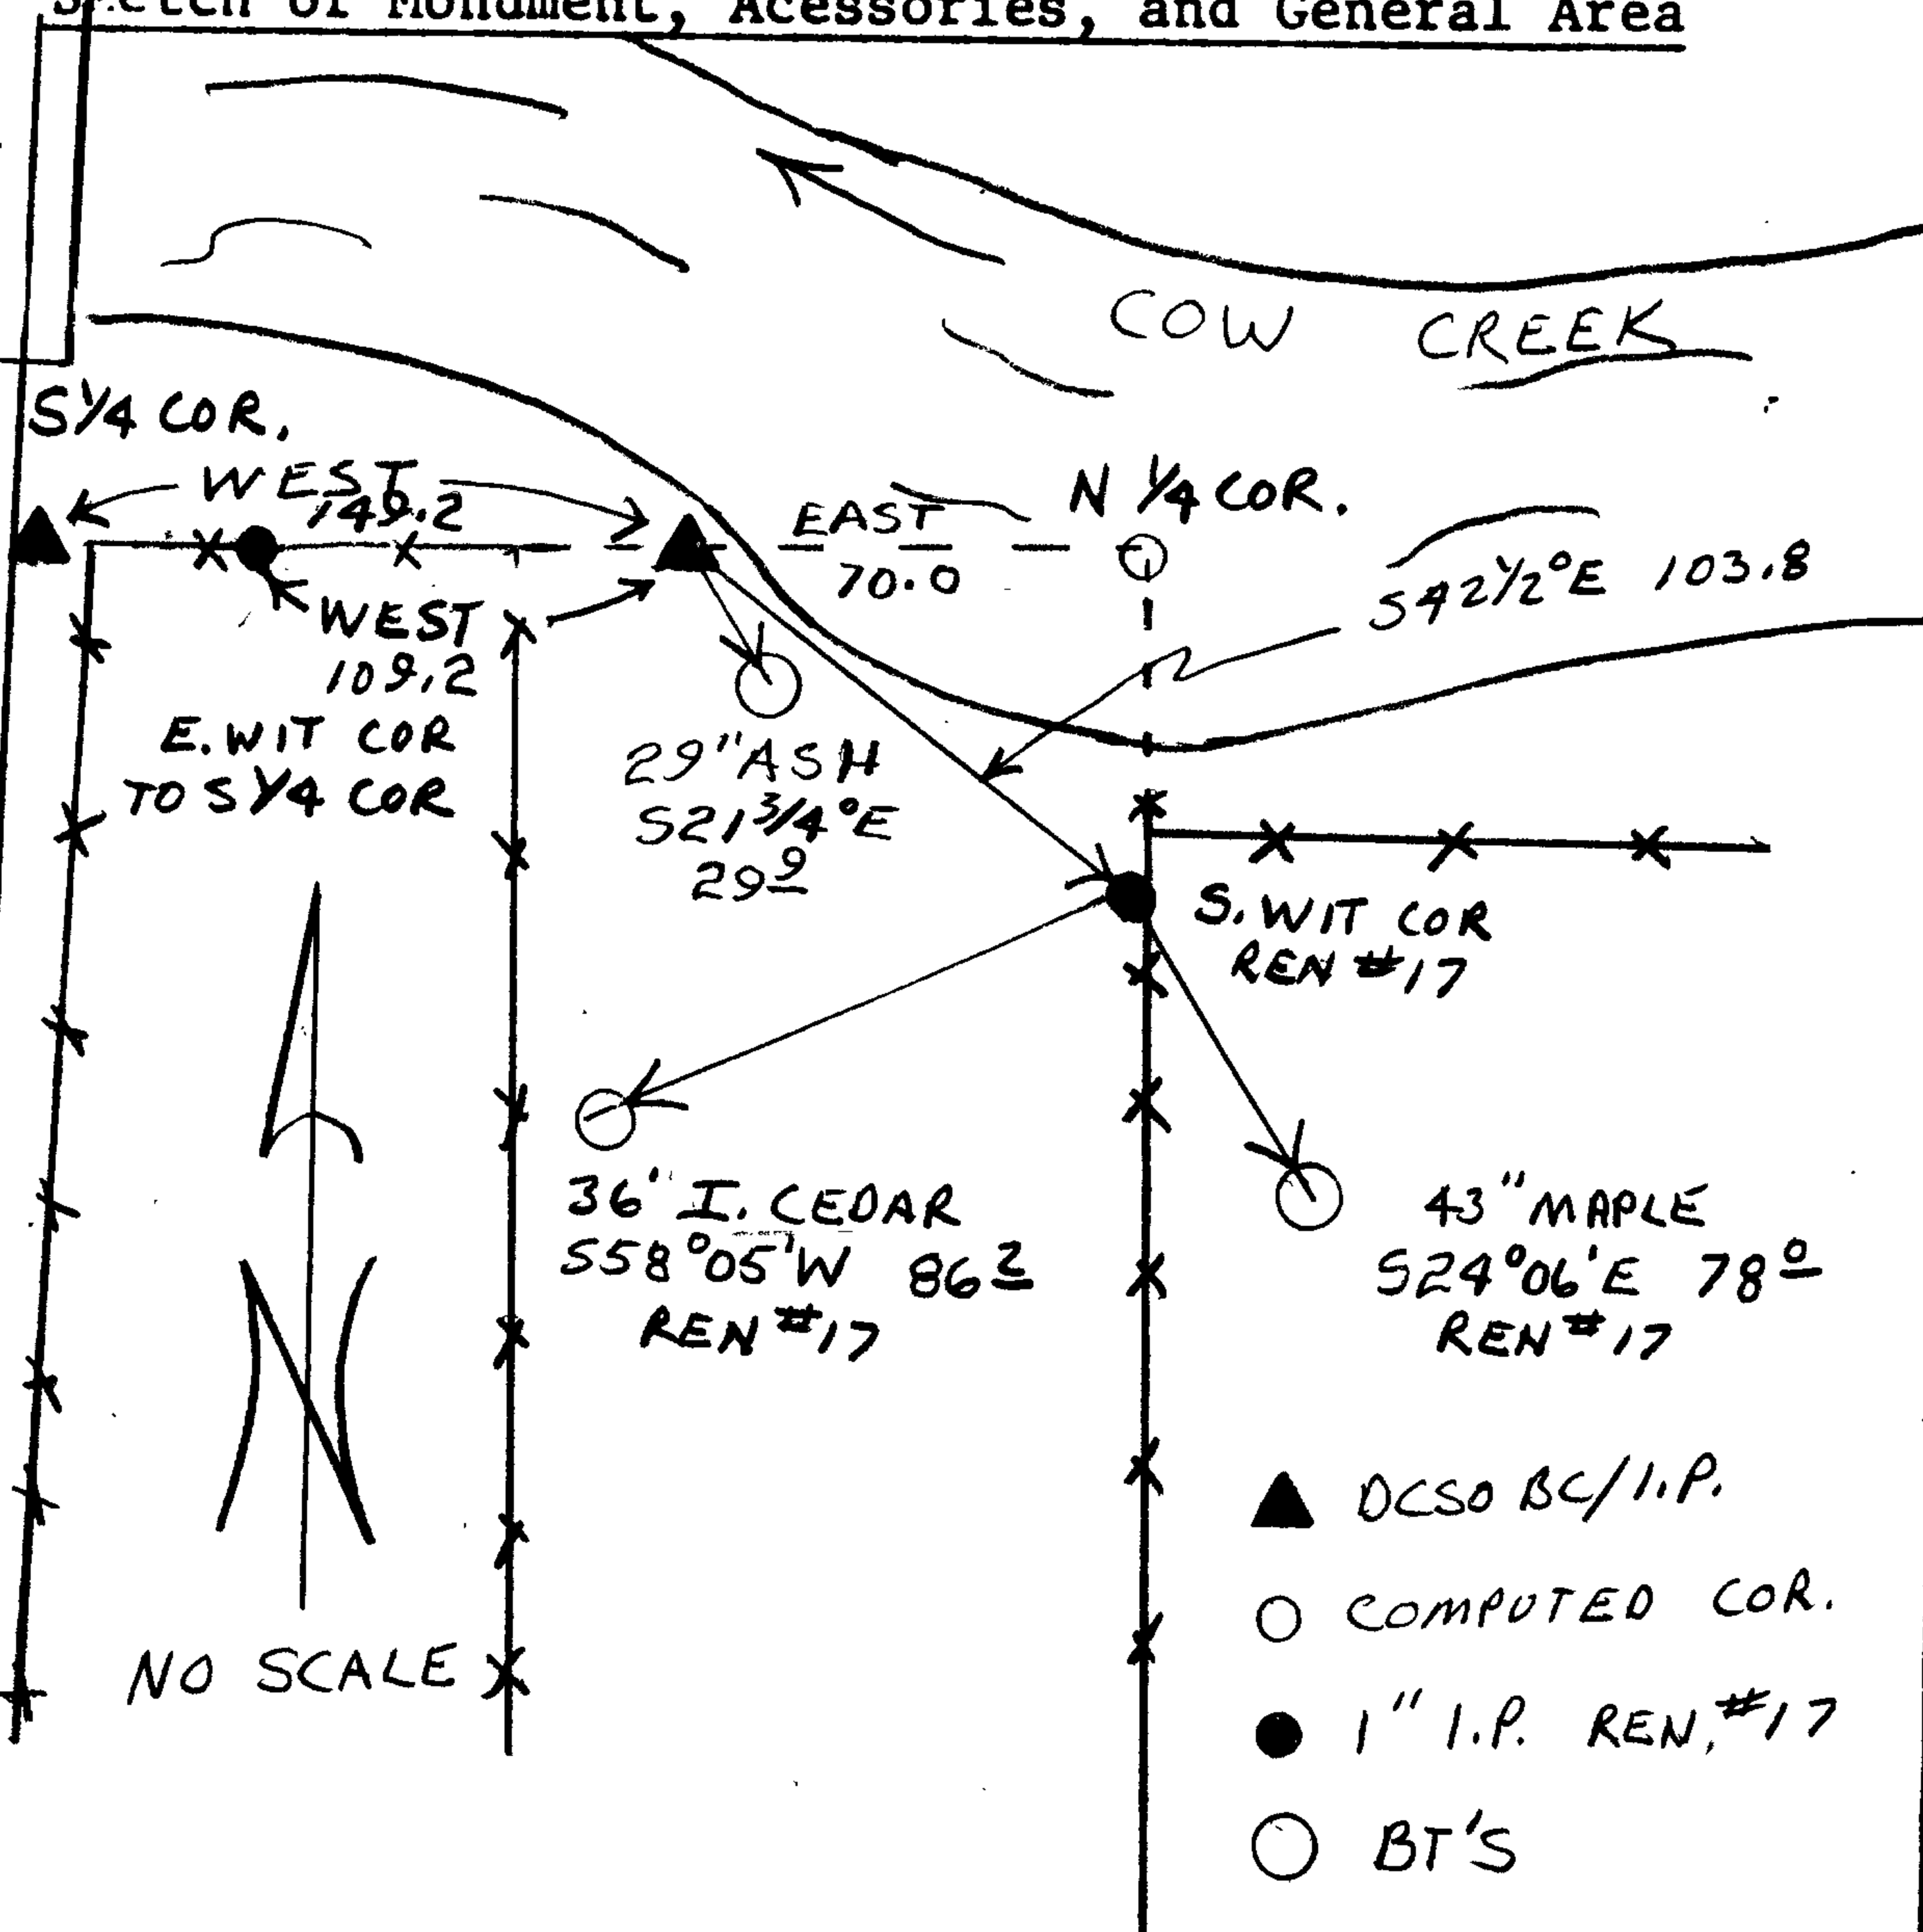 Sketch of Monument, Acessories, and General Area
COW CREEK
S 1/4 COR.
WEST
149.2
EAST
70.0
N 1/4 COR.
S42 1/2°E 103.8
WEST
109.2
E. WIT COR
TO S 1/4 COR
29" ASH
S21 3/4°E
29 9
S. WIT COR
REN #17
36' I. CEDAR
S58°05'W 86 2
REN #17
43" MAPLE
S24°06'E 78 0
REN #17
N
NO SCALE
DCSO BC/I.P.
COMPUTED COR.
1" I.P. REN. #17
BT'S